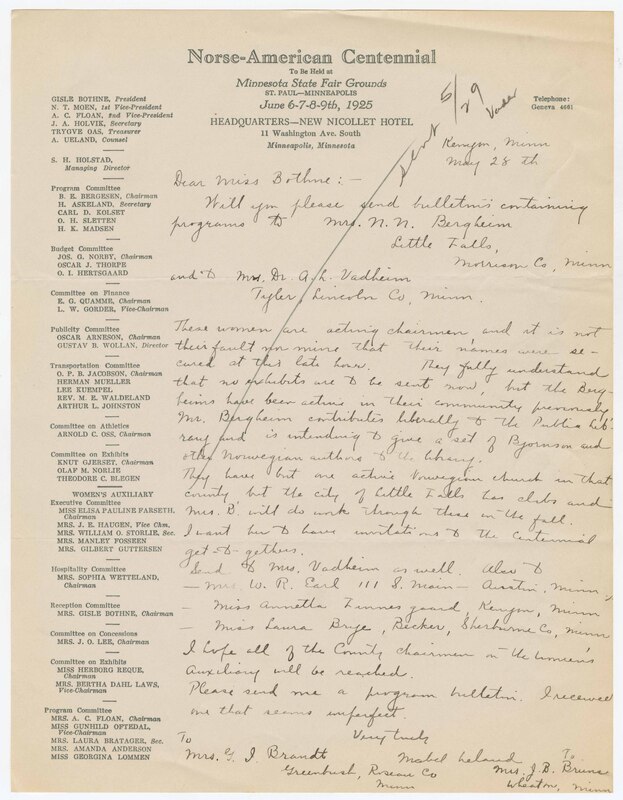 Norse-American Centennial
To Be Held at
Minnesota State Fair Grounds
ST. PAUL—MINNEAPOLIS
June 6-7-8-9th, 1925
HEADQUARTERS—NEW NICOLLET HOTEL
11 Washington Ave. South
Minneapolis, Minnesota
Telephone:
Geneva 4681
Sent 5/29
GISLE BOTHNE, President
N. T. MOEN, 1st Vice-President
A. C. FLOAN, 2nd Vice-President
J. A. HOLVIK, Secretary
TRYGVE OAS, Treasurer
A. UELAND, Counsel
S. H. HOLSTAD,
Managing Director
Program Committee
B. E. BERGESEN, Chairman
H. ASKELAND, Secretary
CARL D. KOLSET
O. H. SLETTEN
H. K. MADSEN
Budget Committee
JOS. G. NORBY, Chairman
OSCAR J. THORPE
O. I. HERTSGAARD
Committee on Finance
E. G. QUAMME, Chairman
L. W. GORDER, Vice-Chairman
Publicity Committee
OSCAR ARNESON, Chairman
GUSTAV B. WOLLAN, Director
Transportation Committee
O. P. B. JACOBSON, Chairman
HERMAN MUELLER
LEE KUEMPEL
REV. M. E. WALDELAND
ARTHUR L. JOHNSTON
Committee on Athletics
ARNOLD C. OSS, Chairman
Committee on Exhibits
KNUT GJERSET, Chairman
OLAF M. NORLIE
THEODORE C. BLEGEN
WOMEN'S AUXILIARY
Executive Committee
MISS ELISA PAULINE FARSETH,
Chairman
MRS. J. E. HAUGEN, Vice Chm.
MRS. WILLIAM O. STORLIE, Sec.
MRS. MANLEY FOSSEEN
MRS. GILBERT GUTTERSEN
Hospitality Committee
MRS. SOPHIA WETTELAND,
Chairman
Reception Committee
MRS. GISLE BOTHNE, Chairman
Committee on Concessions
MRS. J. O. LEE, Chairman
Committee on Exhibits
MISS HERBORG REQUE,
Chairman
MRS. BERTHA DAHL LAWS,
Vice-Chairman
Program Committee
MRS. A. C. FLOAN, Chairman
MISS GUNHILD OFTEDAL,
Vice-Chairman
MRS. LAURA BRATAGER, Sec.
MRS. AMANDA ANDERSON
MISS GEORGINA LOMMEN
Kenyon, Minn
May 28 th
Dear Miss Bothne:-
Will you please send bulletins containing
programs to Mrs. N. N. Bergheim
Little Falls,
Morrison Co, Minn
and to Mrs. Dr. A. L. Vadheim
Tyler, Lincoln Co, Minn.
These women are acting chairmen and it is not
their fault nor mine that their names were se-
cured at this late hour. They fully understand
that no exhibits are to be sent now, but the Berg-
heims have been active in their community previously
Mr. Bergheim contributes liberally to the Public Lib-
rary and is intending to give a set of Bjornson and
other Norwegian authors to the library.
They have but one active Norwegian church in that
county but the city of Little Falls has clubs and
Mrs. B. will do work through these in the fall.
I want her to have invitations to the Centennial
get-to-gethers.
Send to Mrs. Vadheim as well. Also to
- Mrs. W. R. Earl 111 S. Main - Austin, Minn,
- Miss Annetta Finnesgaard, Kenyon, Minn
- Miss Laura Brye, Becker, Sherburne Co, Minn
I hope all of the County chairmen on the Women's
Auxiliary will be reached.
Please send me a program bulletin. I received
one that seems imperfect.
Very truly
Mabel Leland
To
Mrs. G. I. Brandt
Greenbush, Roseau Co
Minn
To
Mrs. J. B. Bruns
Wheaton, Minn